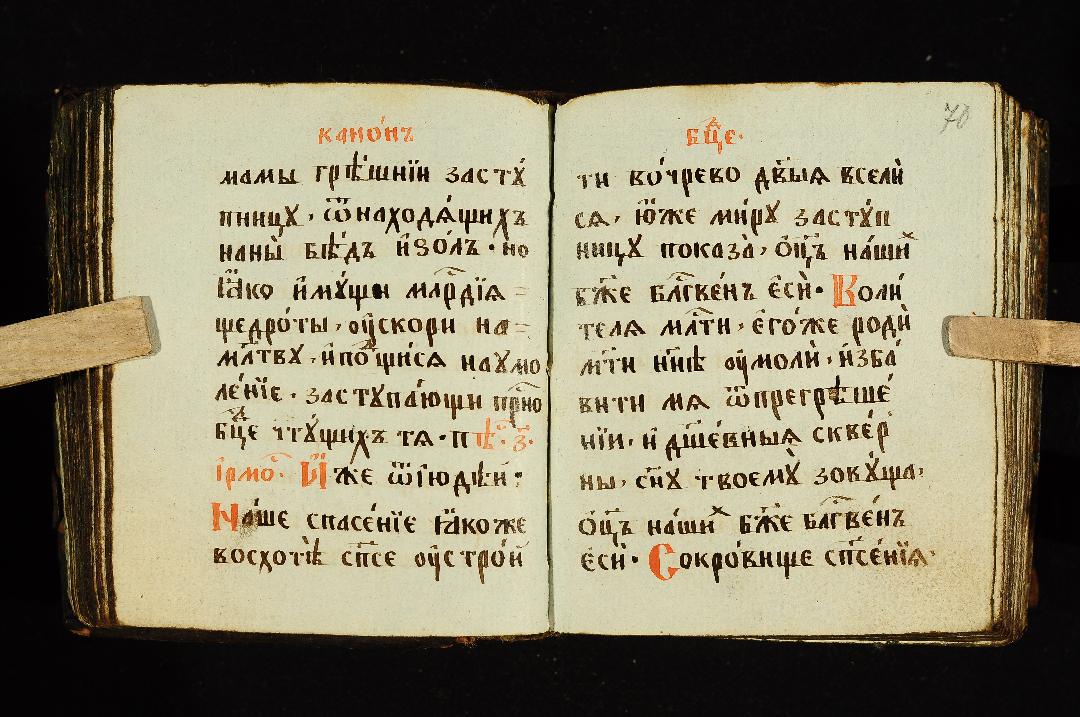 канѡ́нъ
мамы грѣ́шнїи застꙋ́
пницꙋ, ѿнаходѧ́щихъ
наны̀ бѣ́дъ и҆ ѕо́лъ. но
ꙗ҆́ко и҆мꙋ́щи млⷭ҇рдїѧ
щедро́ты, оу҆скори на
мл҃твꙋ, и҆потщи́сѧ наумо
ле́нїе. застꙋпа́ющи при́сно
бцⷣе чтꙋ́щихъ тѧ. пѣⷭ҇. з҃.
ірмо́с. И҆́же ѿ і҆юде́и:
На́ше спасе́нїе ꙗ҆́коже
восхотѣ̀ сп҃се оу҆стро́й
бцⷣе.
70
ти во́чрево дв҃ыѧ всели́
сѧ, ю҆́же ми́рꙋ застꙋ́п
ницꙋ показа̀, ѻ҆ц҃ъ на́ши́х
бж҃е блг҃ве́нъ є҆сѝ. Воли́
телѧ мл҃ти, є҆го́же родѝ
мт҃и нн҃ѣ оу҆моли̇̀, и҆зба́
вити мѧ ѿпрегрѣше́
нїи, и҆ дш҃е́вныѧ скве́р
ны, сн҃ꙋ твоемꙋ̀ зовꙋ́ща,
ѻ҆ц҃ъ на́шихъ бж҃е блг҃ве́нъ
є҆сѝ. Сокро́вище сп҃се́нїѧ.